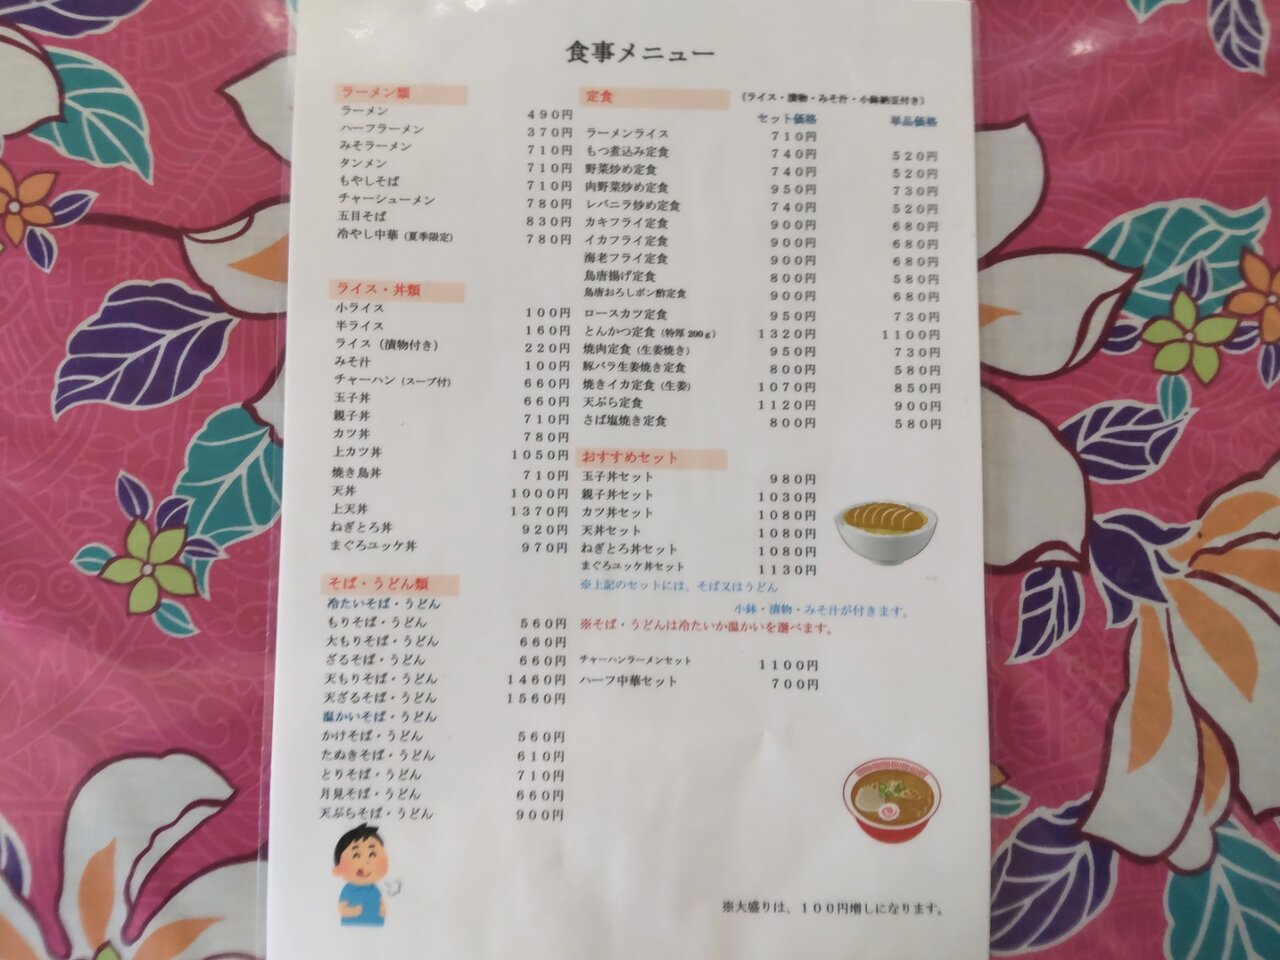 食事メニュー
ラーメン類
ラーメン 490円
ハーフラーメン 370円
みそラーメン 710円
タンメン 710円
もやしそば 710円
チャーシューメン 780円
五目そば 830円
冷やし中華(夏季限定) 780円
ライス・丼類
小ライス 100円
半ライス 160円
ライス(漬物付き) 220円
みそ汁 100円
チャーハン(スープ付) 660円
玉子丼 660円
親子丼 710円
カツ丼 780円
上カツ丼 1050円
焼き鳥丼 710円
天丼 1000円
上天丼 1370円
ねぎとろ丼 920円
まぐろユッケ丼 970円
そば・うどん類
冷たいそば・うどん
もりそば・うどん 560円
大もりそば・うどん 660円
ざるそば・うどん 660円
天もりそば・うどん 1460円
天ざるそば・うどん 1560円
温かいそば・うどん
かけそば・うどん 560円
たぬきそば・うどん 610円
とりそば・うどん 710円
月見そば・うどん 660円
天ぷらそば・うどん 900円
定食 (ライス・漬物・みそ汁・小鉢納豆付き)
セット価格 単品価格
ラーメンライス 710円
もつ煮込み定食 740円 520円
野菜炒め定食 740円 520円
肉野菜炒め定食 950円 730円
レバニラ炒め定食 740円 520円
カキフライ定食 900円 680円
イカフライ定食 900円 680円
海老フライ定食 900円 680円
鳥唐揚げ定食 800円 580円
鳥唐おろしポン酢定食 900円 680円
ロースカツ定食 950円 730円
とんかつ定食(特厚200g) 1320円 1100円
焼肉定食(生姜焼き) 950円 730円
豚バラ生姜焼き定食 800円 580円
焼きイカ定食(生姜) 1070円 850円
天ぷら定食 1120円 900円
さば塩焼き定食 800円 580円
おすすめセット
玉子丼セット 980円
親子丼セット 1030円
カツ丼セット 1080円
天丼セット 1080円
ねぎとろ丼セット 1080円
まぐろユッケ丼セット 1130円
※上記のセットには、そば又はうどん
小鉢・漬物・みそ汁が付きます。
※そば・うどんは冷たいか温かいを選べます。
チャーハンラーメンセット 1100円
ハーフ中華セット 700円
※大盛りは、100円増しになります。